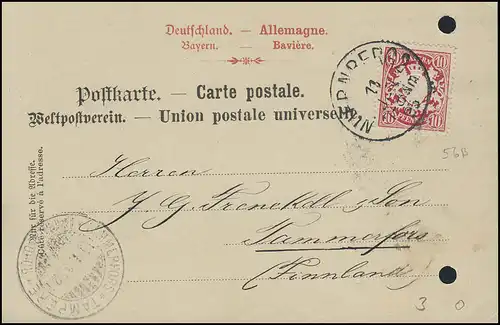 Deutschland. — Allemagne.
Bayern. — Bavière.
Postkarte. — Carte postale.
Weltpostverein. — Union postale universelle.
Nur für die Adresse.
Côté réservé à l'adresse.
NUERNBERG
10
10
PFENNIG
56B
Herren
J. G. Frenckell & Son
Tammerfors
(Finnland)
TAMMERFORS
3 0